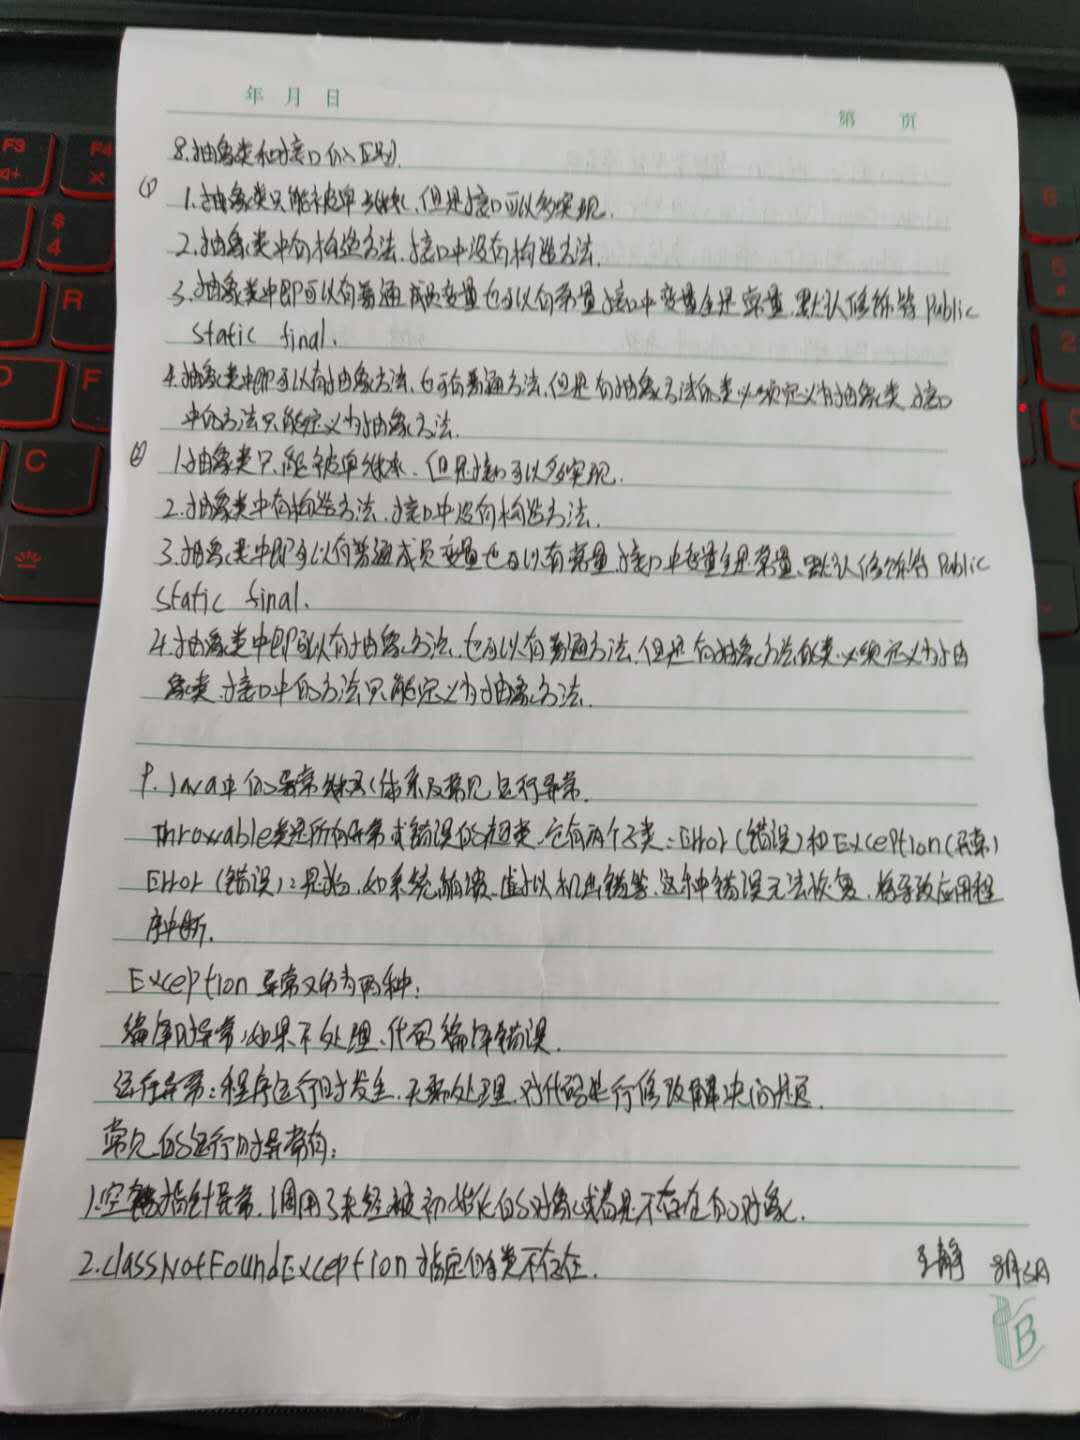 年 月 日
第 页
8.抽象类和接口的区别.
① 1.抽象类只能被单继承,但是接口可以多实现.
2.抽象类中有构造方法.接口中没有构造方法.
3.抽象类中即可以有普通成员变量也可以有常量接口中变量全是常量.默认修饰符Public
static final.
4.抽象类中即可以有抽象方法.也可有普通方法.但是有抽象方法的类必须定义为抽象类.接口
中的方法只能定义为抽象方法.
② 1.抽象类只能被单继承.但是接口可以多实现.
2.抽象类中有构造方法.接口中没有构造方法.
3.抽象类中即可以有普通成员变量也可以有常量.接口中变量全是常量.默认修饰符Public
static final.
4.抽象类中即可以有抽象方法.也可以有普通方法.但是有抽象方法的类.必须定义为抽
象类.接口中的方法只能定义为抽象方法.
9.Java中的异常继承体系及常见运行异常.
Throwable类是所有异常或错误的超类.它有两个子类:Error(错误)和Exception(异常)
Error(错误):是指.如系统崩溃.虚拟机出错等.这种错误无法恢复.将导致应用程
序中断.
Exception异常又分为两种:
编译时异常:如果不处理.代码编译错误.
运行异常:程序运行时发生.无需处理.对代码进行修改解决问题.
常见的运行时异常有:
1.空指针异常.调用了未经被初始化的对象或者是不存在的对象.
2.classNotFoundException指定的类不存在.
王静 8月5日
B